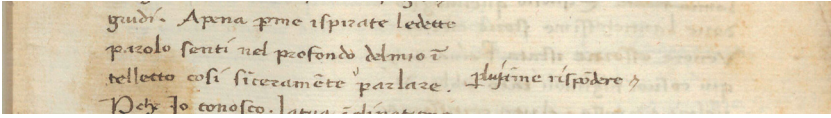 giudi. Apena ꝑme ispirate ledette
parolo senti nel profondo delmio ī
telletto cosi sīceramēte parlare.
ꝑlultime rispōdere
Pche Io conosco. latua īclinatione